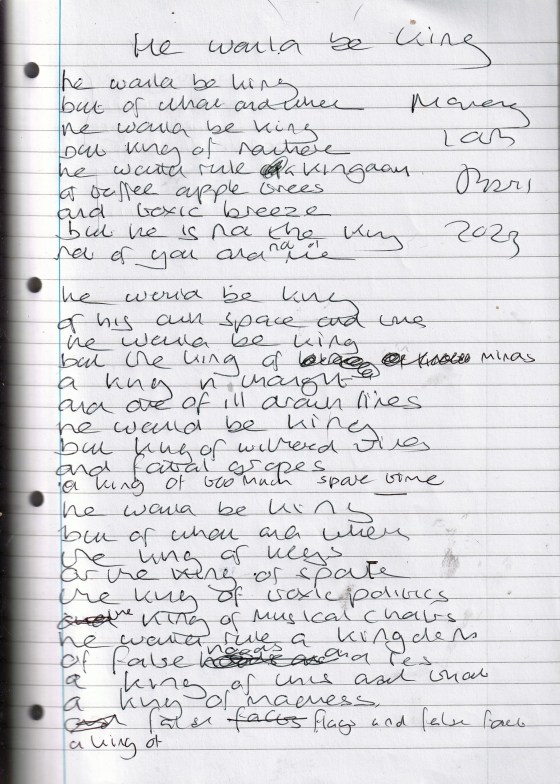 He would be King
he would be king
but of what and when
he would be king
but king of nowhere
he would rule a kingdom
of toffee apple trees
and toxic breeze
but he is not the king
not of you and not of me
Monday
1 am
Paris
2023
he would be king
of his own space and time
he would be king
but the king of minds
a king in
and of ill drawn lines
he would be king
but king of withered vines
and fatal grapes
a king of too much spare time
he would be king
but of what and when
the king of keys
or the king of spate
the king of toxic politics
the king of musical chairs
he would rule a kingdom
of false and
a king of this and that
a king of madness
false flags and false
a king of